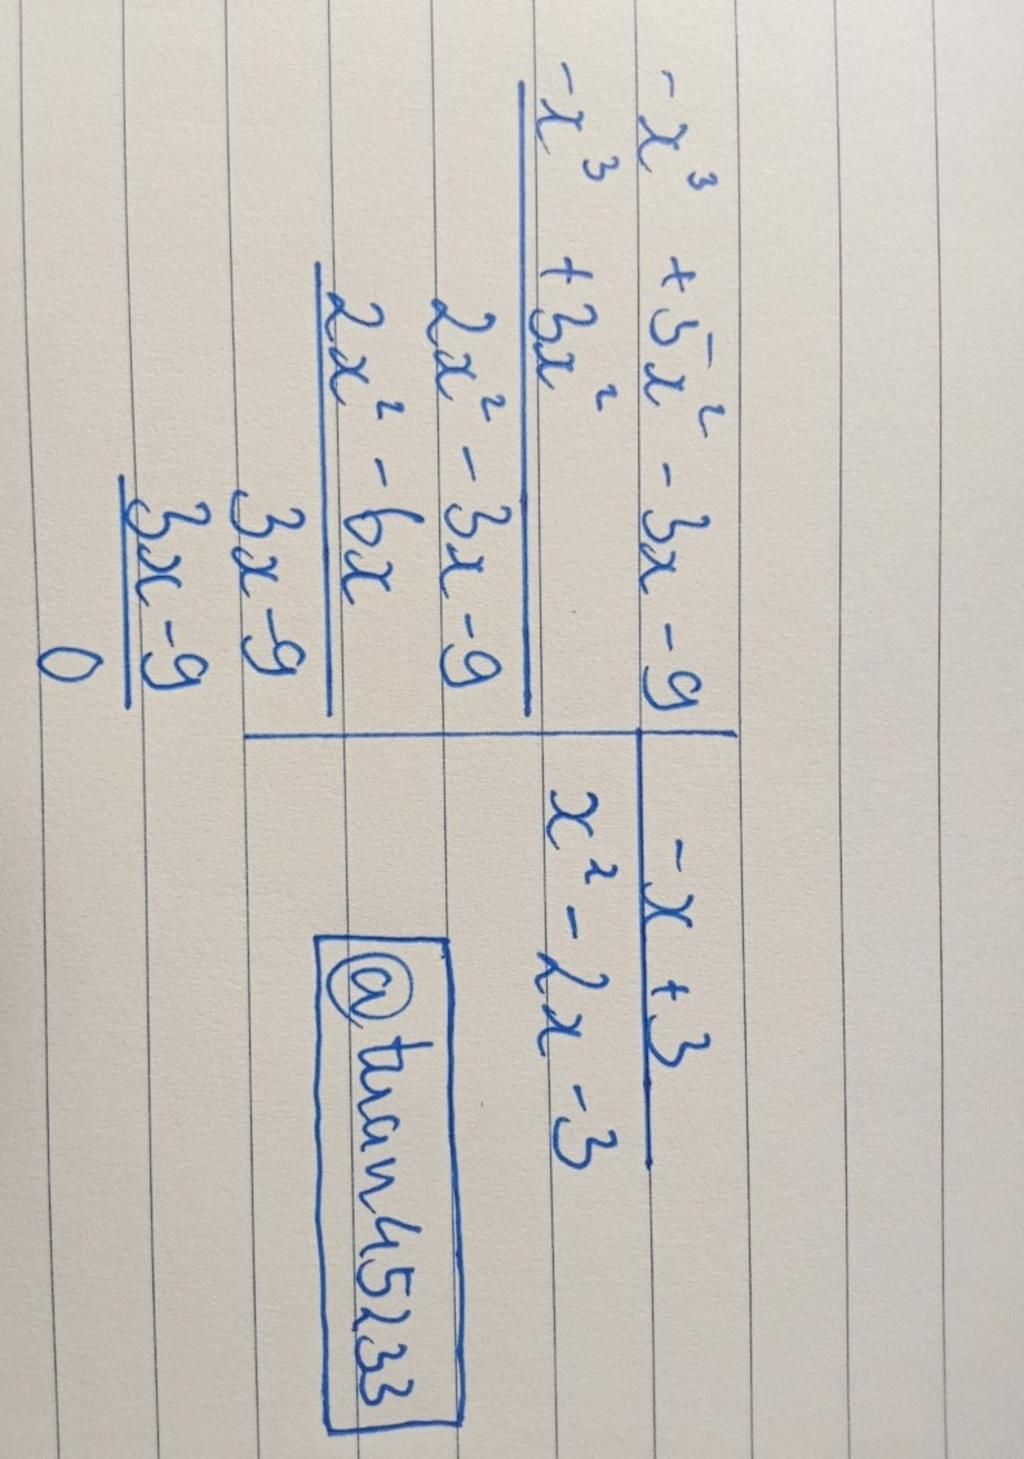 -x³ +5x² -3x -9 | -x +3
-x³ +3x² | x² -2x -3
2x² -3x -9
2x² -6x
3x -9
3x -9
0
@tuan45233